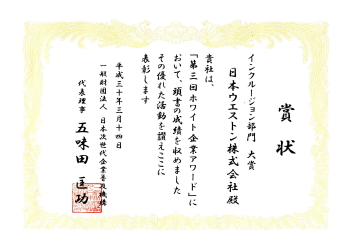 賞状
インクルージョン部門 大賞
日本ウエストン株式会社殿
貴社は、
「第三回ホワイト企業アワード」に
おいて、頭書の成績を収めました
その優れた活動を讃えここに
表彰します
平成三十年三月十四日
一般財団法人 日本次世代企業普及機構
代表理事 五味田 匡功